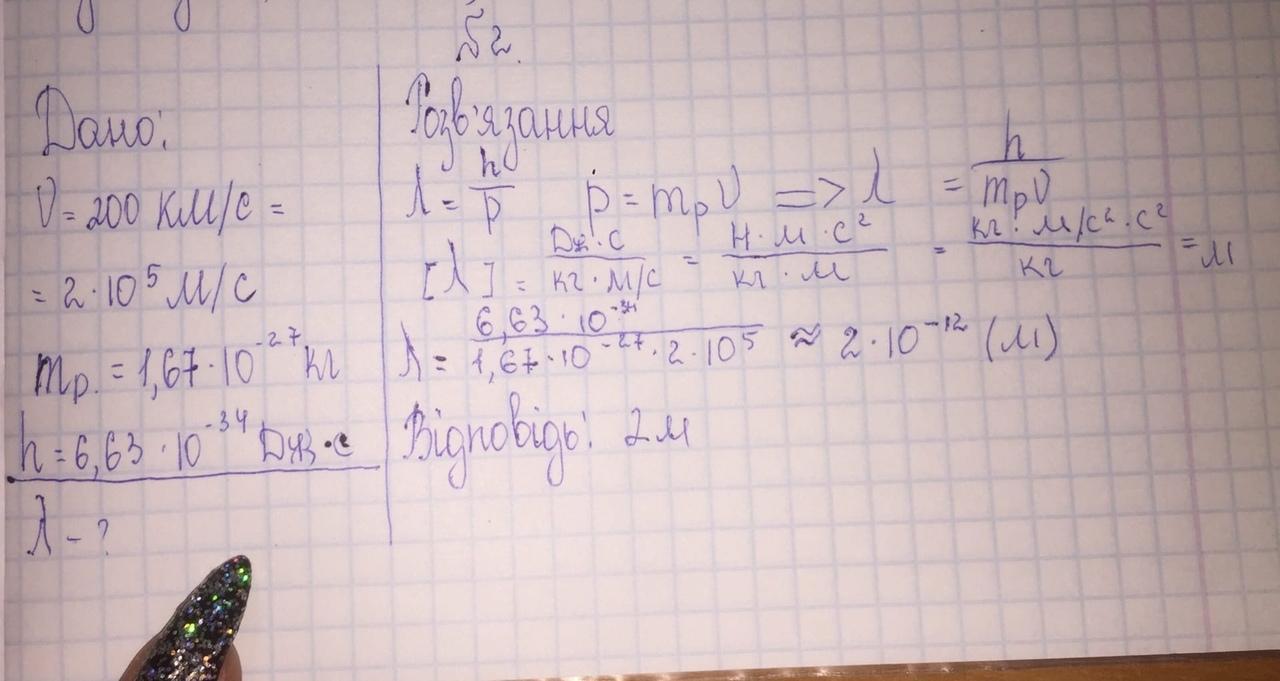 №2.
Дано:
V = 200 км/с =
= 2·10⁵ м/с
mp. = 1,67·10⁻²⁷ кг
h = 6,63·10⁻³⁴ Дж·с
λ - ?
Розв'язання
λ = h/p p = mpV => λ = h/mpV
[λ] = Дж·с/кг·м/с = Н·м·с²/кг·м = кг·м/с²·с²/кг = м
λ = 6,63·10⁻³⁴/1,67·10⁻²⁷·2·10⁵ ≈ 2·10⁻¹² (м)
Відповідь: 2м